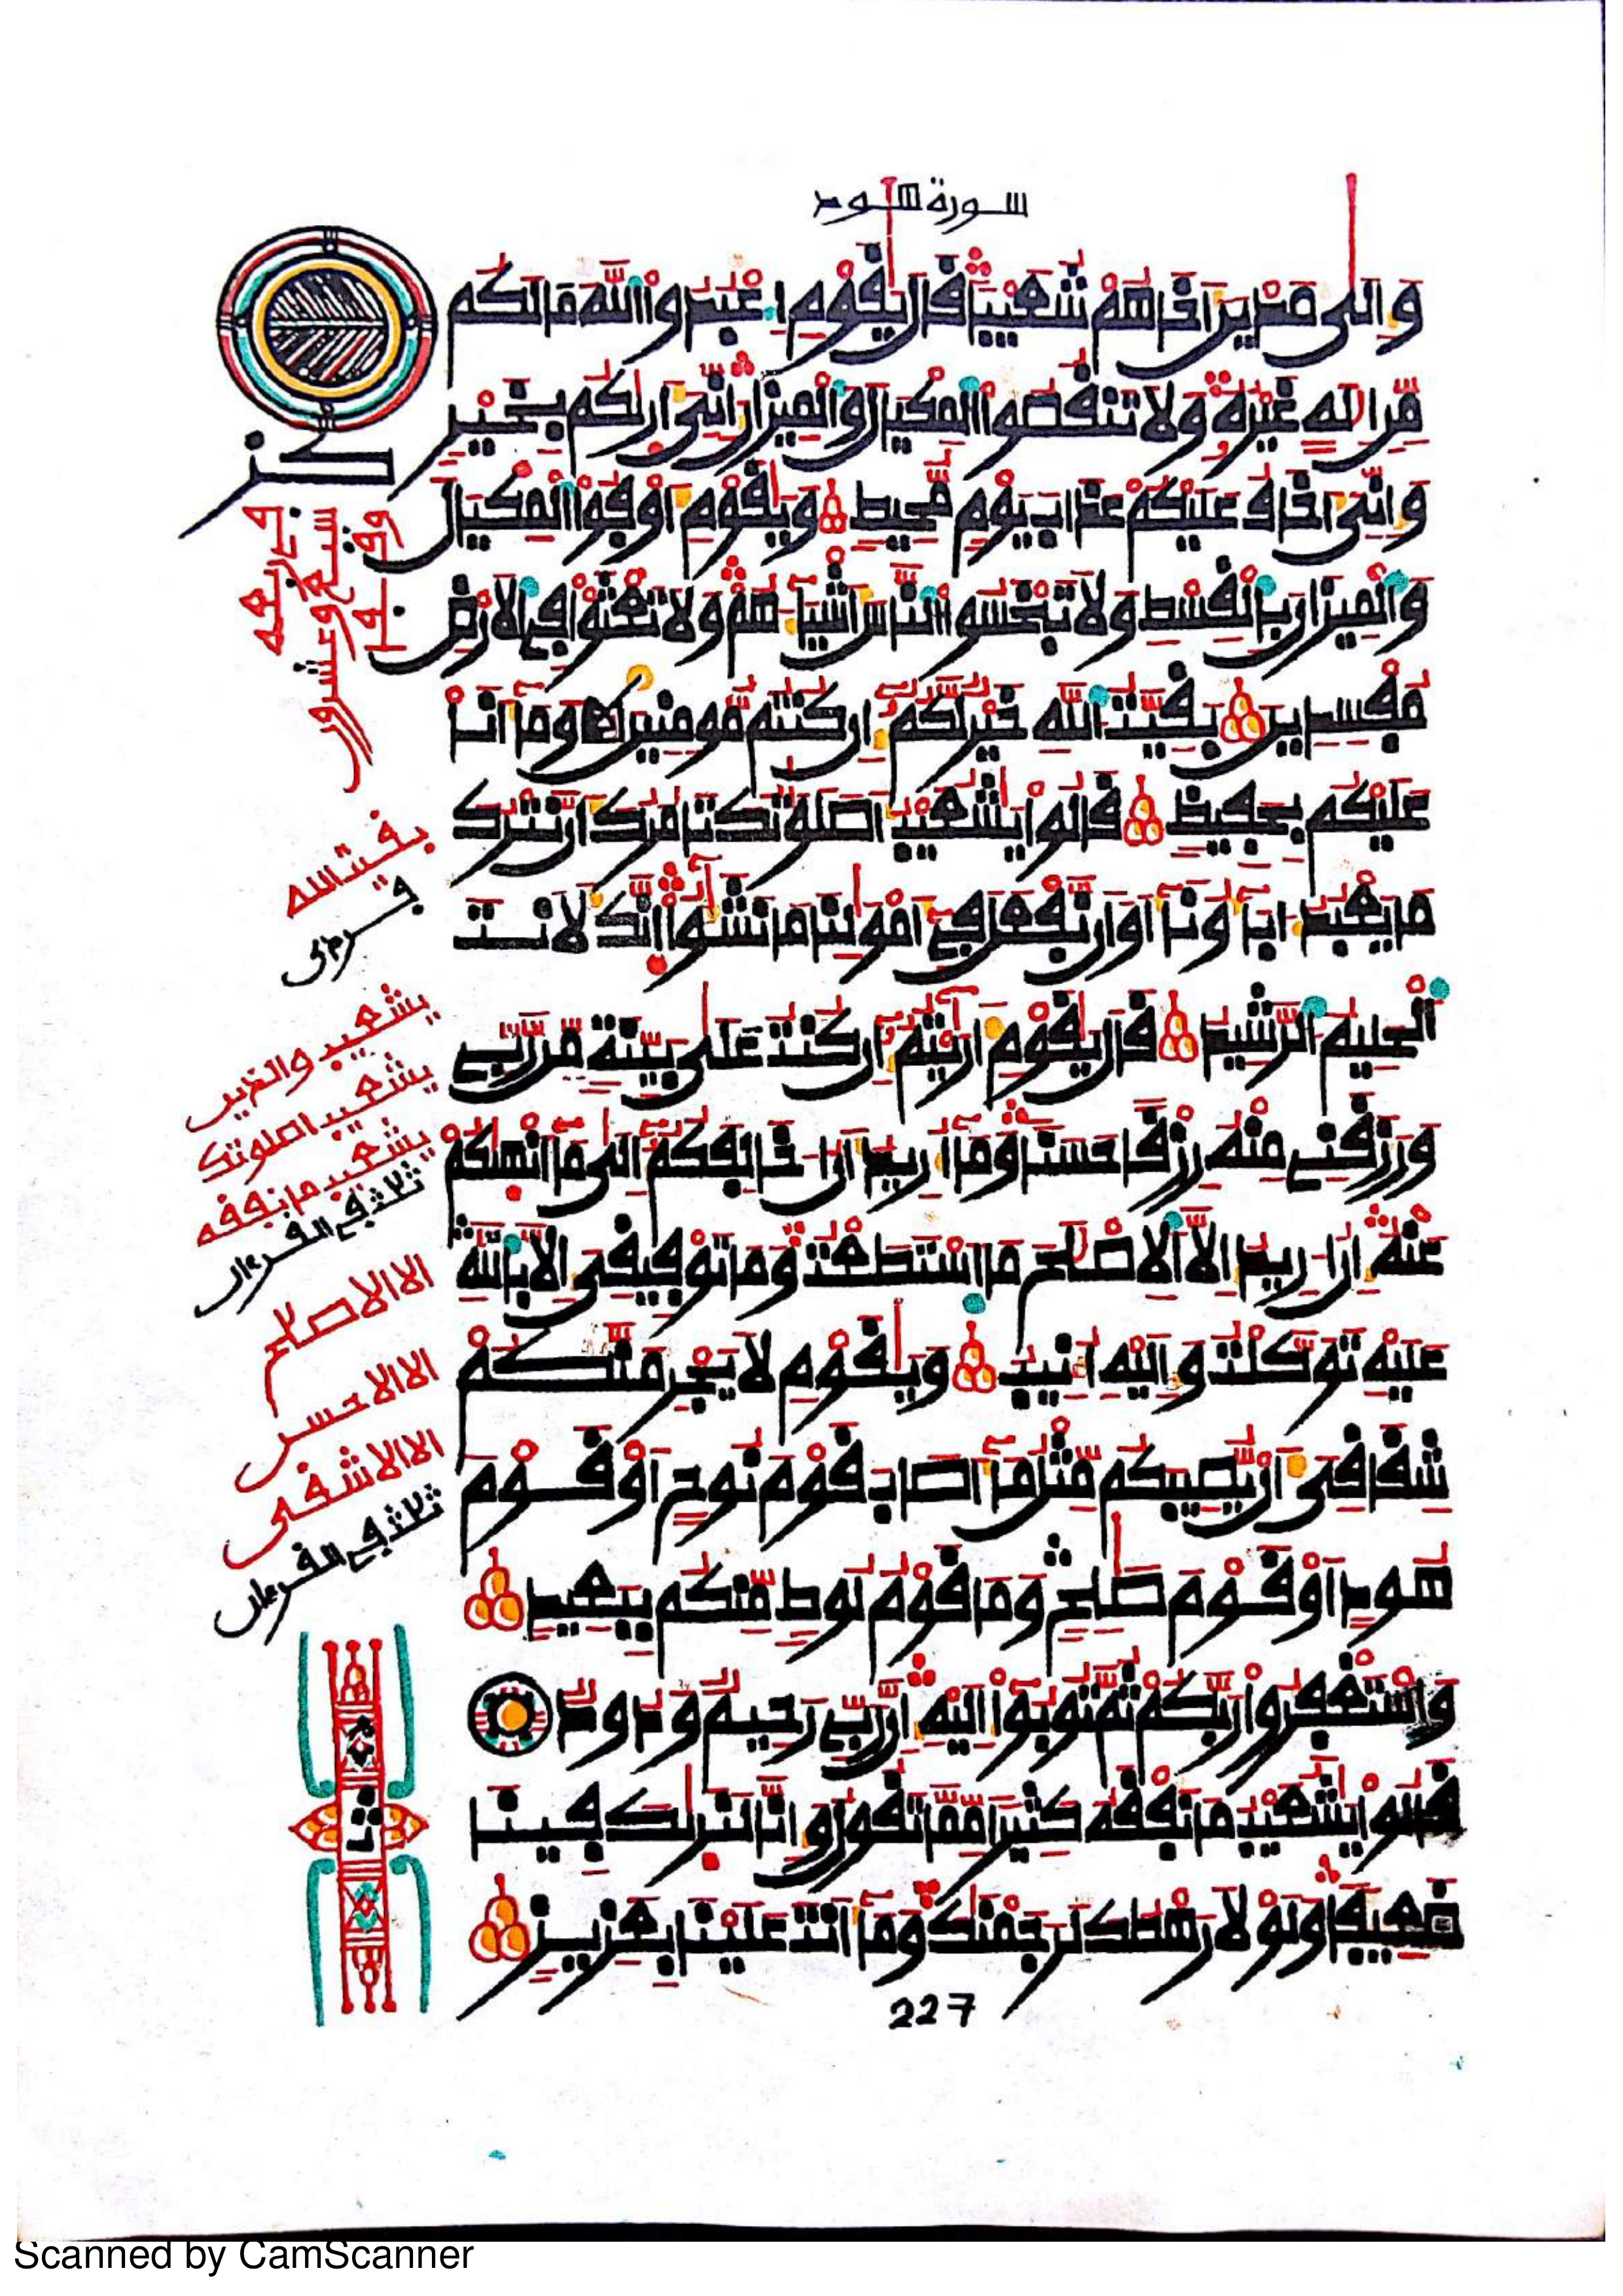 سورة هود
وَإِلَىٰ مَدْيَنَ أَخَاهُمْ شُعَيْبًا قَالَ يَٰقَوْمِ اعْبُدُوا اللَّهَ مَا لَكُم
مِّنْ إِلَٰهٍ غَيْرُهُ وَلَا تَنقُصُوا الْمِكْيَالَ وَالْمِيزَانَ إِنِّيَ أَرَىٰكُم بِخَيْرٍ
وَإِنِّيَ أَخَافُ عَلَيْكُمْ عَذَابَ يَوْمٍ مُّحِيطٍ وَيَٰقَوْمِ أَوْفُوا الْمِكْيَالَ
وَالْمِيزَانَ بِالْقِسْطِ وَلَا تَبْخَسُوا النَّاسَ أَشْيَاءَهُمْ وَلَا تَعْثَوْا فِي الْأَرْضِ
مُفْسِدِينَ بَقِيَّتُ اللَّهِ خَيْرٌ لَّكُمْ إِن كُنتُم مُّومِنِينَ وَمَا أَنَا
عَلَيْكُم بِحَفِيظٍ قَالُوا يَٰشُعَيْبُ أَصَلَوَٰتُكَ تَامُرُكَ أَن نَّتْرُكَ
مَا يَعْبُدُ ءَابَاؤُنَا أَوْ أَن نَّفْعَلَ فِي أَمْوَٰلِنَا مَا نَشَٰؤُا إِنَّكَ لَأَنتَ
الْحَلِيمُ الرَّشِيدُ قَالَ يَٰقَوْمِ أَرَٰيْتُمْ إِن كُنتُ عَلَىٰ بَيِّنَةٍ مِّن رَّبِّي
وَرَزَقَنِي مِنْهُ رِزْقًا حَسَنًا وَمَا أُرِيدُ أَنْ أُخَالِفَكُمْ إِلَىٰ مَا أَنْهَىٰكُمْ
عَنْهُ إِنْ أُرِيدُ إِلَّا الْإِصْلَٰحَ مَا اسْتَطَعْتُ وَمَا تَوْفِيقِيَ إِلَّا بِاللَّهِ
عَلَيْهِ تَوَكَّلْتُ وَإِلَيْهِ أُنِيبُ وَيَٰقَوْمِ لَا يَجْرِمَنَّكُمْ
شِقَاقِيَ أَن يُّصِيبَكُم مِّثْلُ مَا أَصَابَ قَوْمَ نُوحٍ أَوْ قَوْمَ
هُودٍ أَوْ قَوْمَ صَٰلِحٍ وَمَا قَوْمُ لُوطٍ مِّنكُم بِبَعِيدٍ
وَاسْتَغْفِرُوا رَبَّكُمْ ثُمَّ تُوبُوا إِلَيْهِ إِنَّ رَبِّي رَحِيمٌ وَدُودٌ
قَالُوا يَٰشُعَيْبُ مَا نَفْقَهُ كَثِيرًا مِّمَّا تَقُولُ وَإِنَّا لَنَرَىٰكَ فِينَا
ضَعِيفًا وَلَوْلَا رَهْطُكَ لَرَجَمْنَٰكَ وَمَا أَنتَ عَلَيْنَا بِعَزِيزٍ
بقيت الله
يشعيب اصلوتك
يشعيب ما نفقه
ثلاث في القرءان
الا الاصلح
الا الاحسن
الا الاشقى
ثلاث في القرءان
227
Scanned by CamScanner